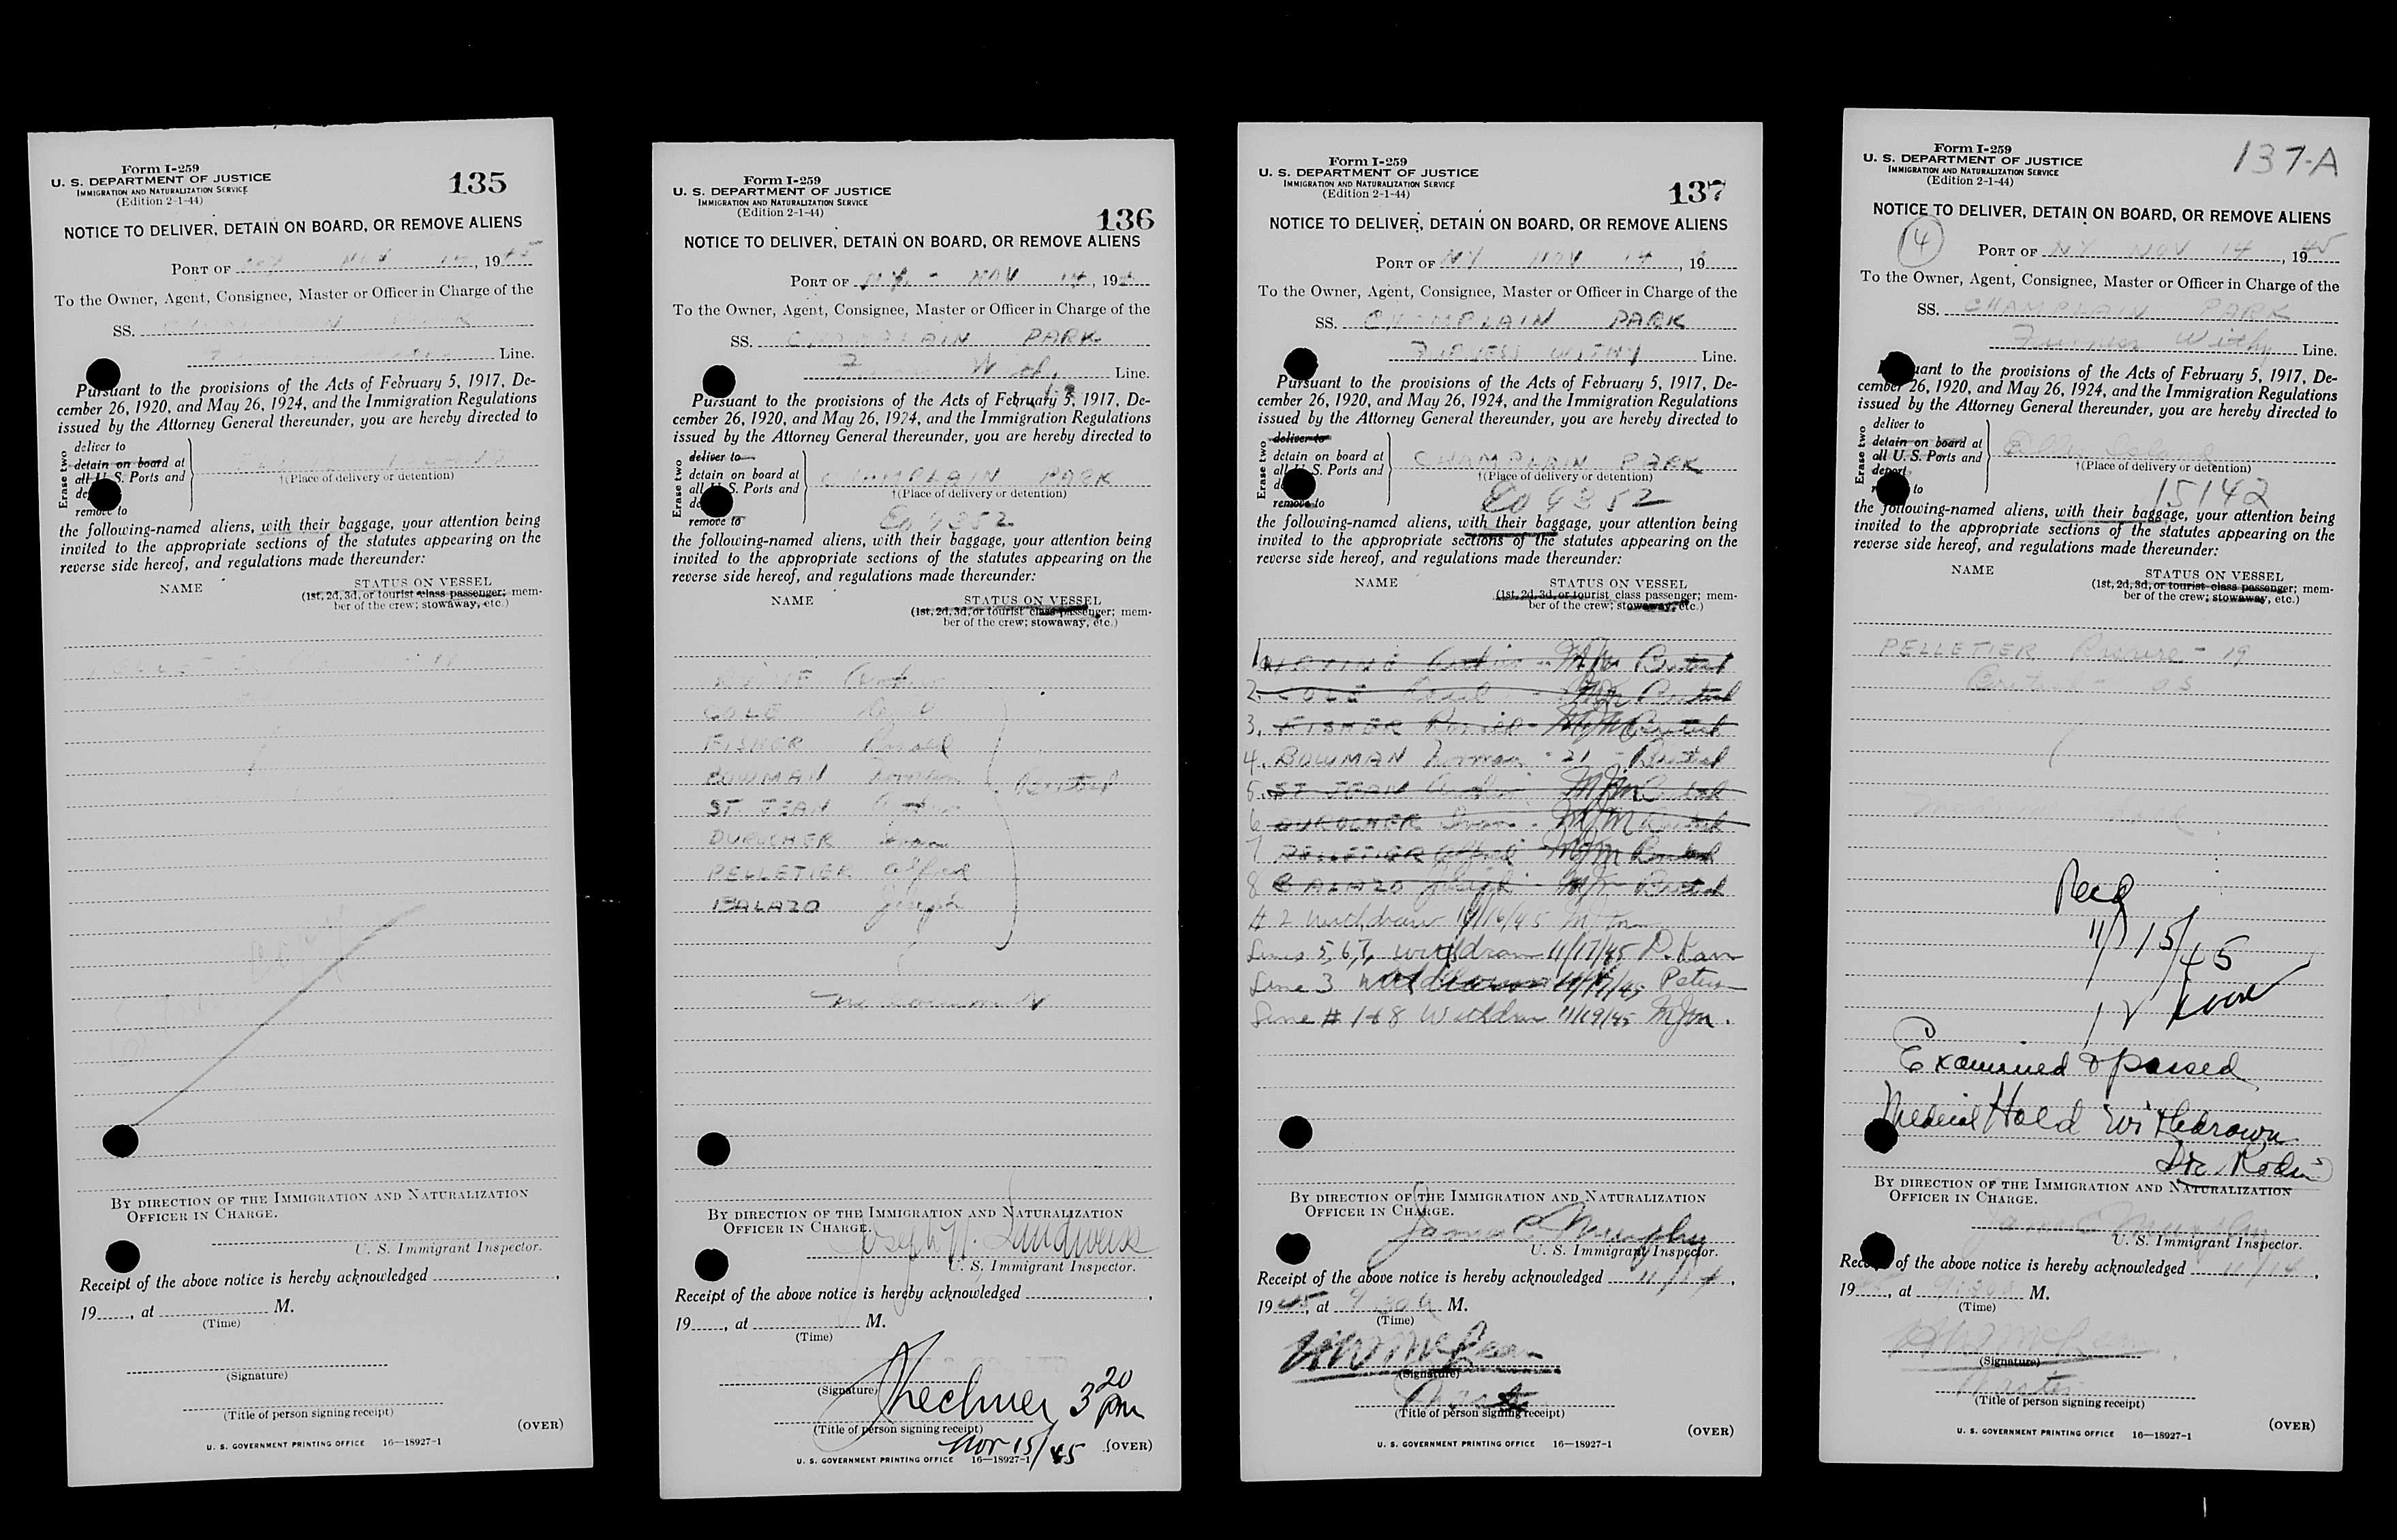 Form I-259
U. S. DEPARTMENT OF JUSTICE
IMMIGRATION AND NATURALIZATION SERVICE
(Edition 2-1-44)
135
NOTICE TO DELIVER, DETAIN ON BOARD, OR REMOVE ALIENS
PORT OF NOV 14, 1945
To the Owner, Agent, Consignee, Master or Officer in Charge of the
SS. PARK
Line.
Pursuant to the provisions of the Acts of February 5, 1917, De-
cember 26, 1920, and May 26, 1924, and the Immigration Regulations
issued by the Attorney General thereunder, you are hereby directed to
Erase two
deliver to
detain on board at
all U. S. Ports and
remove to
†(Place of delivery or detention)
the following-named aliens, with their baggage, your attention being
invited to the appropriate sections of the statutes appearing on the
reverse side hereof, and regulations made thereunder:
NAME
STATUS ON VESSEL
(1st, 2d, 3d, or tourist class passenger; mem-
ber of the crew; stowaway, etc.)
BY DIRECTION OF THE IMMIGRATION AND NATURALIZATION
OFFICER IN CHARGE.
U. S. Immigrant Inspector.
Receipt of the above notice is hereby acknowledged
19, at M.
(Time)
(Signature)
(Title of person signing receipt)
(OVER)
U. S. GOVERNMENT PRINTING OFFICE 16—18927-1
Form I-259
U. S. DEPARTMENT OF JUSTICE
IMMIGRATION AND NATURALIZATION SERVICE
(Edition 2-1-44)
136
NOTICE TO DELIVER, DETAIN ON BOARD, OR REMOVE ALIENS
PORT OF N.Y. - NOV 14, 19
To the Owner, Agent, Consignee, Master or Officer in Charge of the
SS. CHAMPLAIN PARK
Line.
Pursuant to the provisions of the Acts of February 5, 1917, De-
cember 26, 1920, and May 26, 1924, and the Immigration Regulations
issued by the Attorney General thereunder, you are hereby directed to
Erase two
deliver to
detain on board at
all U. S. Ports and
remove to
CHAMPLAIN PARK
†(Place of delivery or detention)
Eo 9352
the following-named aliens, with their baggage, your attention being
invited to the appropriate sections of the statutes appearing on the
reverse side hereof, and regulations made thereunder:
NAME
STATUS ON VESSEL
(1st, 2d, 3d, or tourist class passenger; mem-
ber of the crew; stowaway, etc.)
COLE
FISHER Ronald
BOWMAN Norman British
ST. JEAN
DUROCHER
PELLETIER Alfred
BALAZO Joseph
BY DIRECTION OF THE IMMIGRATION AND NATURALIZATION
OFFICER IN CHARGE.
U. S. Immigrant Inspector.
Receipt of the above notice is hereby acknowledged
19, at M.
(Time)
(Signature)
3 20 pm
(Title of person signing receipt)
Nov 15/45
(OVER)
U. S. GOVERNMENT PRINTING OFFICE 16—18927-1
Form I-259
U. S. DEPARTMENT OF JUSTICE
IMMIGRATION AND NATURALIZATION SERVICE
(Edition 2-1-44)
137
NOTICE TO DELIVER, DETAIN ON BOARD, OR REMOVE ALIENS
PORT OF NY NOV 14, 19
To the Owner, Agent, Consignee, Master or Officer in Charge of the
SS. CHAMPLAIN PARK
FURNESS WITHY Line.
Pursuant to the provisions of the Acts of February 5, 1917, De-
cember 26, 1920, and May 26, 1924, and the Immigration Regulations
issued by the Attorney General thereunder, you are hereby directed to
Erase two
deliver to
detain on board at
all U. S. Ports and
remove to
CHAMPLAIN PARK
†(Place of delivery or detention)
Eo 9352
the following-named aliens, with their baggage, your attention being
invited to the appropriate sections of the statutes appearing on the
reverse side hereof, and regulations made thereunder:
NAME
STATUS ON VESSEL
(1st, 2d, 3d, or tourist class passenger; mem-
ber of the crew; stowaway, etc.)
1. British
2. COLE British
3. FISHER Ronald British
4. BOWMAN Norman - 21 - British
5. ST JEAN
6 DUROCHER British
7 PELLETIER Alfred British
8 BALAZO Joseph British
# 2 withdrawn 11/16/45
Lines 5, 6, 7, withdrawn 11/17/45
Line 3 withdrawn
Line # 1 + 8 Withdrawn 11/19/45 MJM.
BY DIRECTION OF THE IMMIGRATION AND NATURALIZATION
OFFICER IN CHARGE.
James C. Murphy
U. S. Immigrant Inspector.
Receipt of the above notice is hereby acknowledged 11/14,
1945, at 9 30a M.
(Time)
(Signature)
Master
(Title of person signing receipt)
(OVER)
U. S. GOVERNMENT PRINTING OFFICE 16—18927-1
Form I-259
U. S. DEPARTMENT OF JUSTICE
IMMIGRATION AND NATURALIZATION SERVICE
(Edition 2-1-44)
137-A
NOTICE TO DELIVER, DETAIN ON BOARD, OR REMOVE ALIENS
4
PORT OF NY NOV 14, 1945
To the Owner, Agent, Consignee, Master or Officer in Charge of the
SS. CHAMPLAIN PARK
Furness Withy Line.
Pursuant to the provisions of the Acts of February 5, 1917, De-
cember 26, 1920, and May 26, 1924, and the Immigration Regulations
issued by the Attorney General thereunder, you are hereby directed to
Erase two
deliver to
detain on board at
all U. S. Ports and
deport
to
Ellis Island
†(Place of delivery or detention)
15142
the following-named aliens, with their baggage, your attention being
invited to the appropriate sections of the statutes appearing on the
reverse side hereof, and regulations made thereunder:
NAME
STATUS ON VESSEL
(1st, 2d, 3d, or tourist class passenger; mem-
ber of the crew; stowaway, etc.)
PELLETIER - 19
British - OS
Recd
11/15/45
12 Noon
Examined & passed
Medical Hold Withdrawn
BY DIRECTION OF THE IMMIGRATION AND NATURALIZATION
OFFICER IN CHARGE.
James C Murphy
U. S. Immigrant Inspector.
Receipt of the above notice is hereby acknowledged 11/14,
19, at 9:30a M.
(Time)
(Signature)
Master
(Title of person signing receipt)
(OVER)
U. S. GOVERNMENT PRINTING OFFICE 16—18927-1